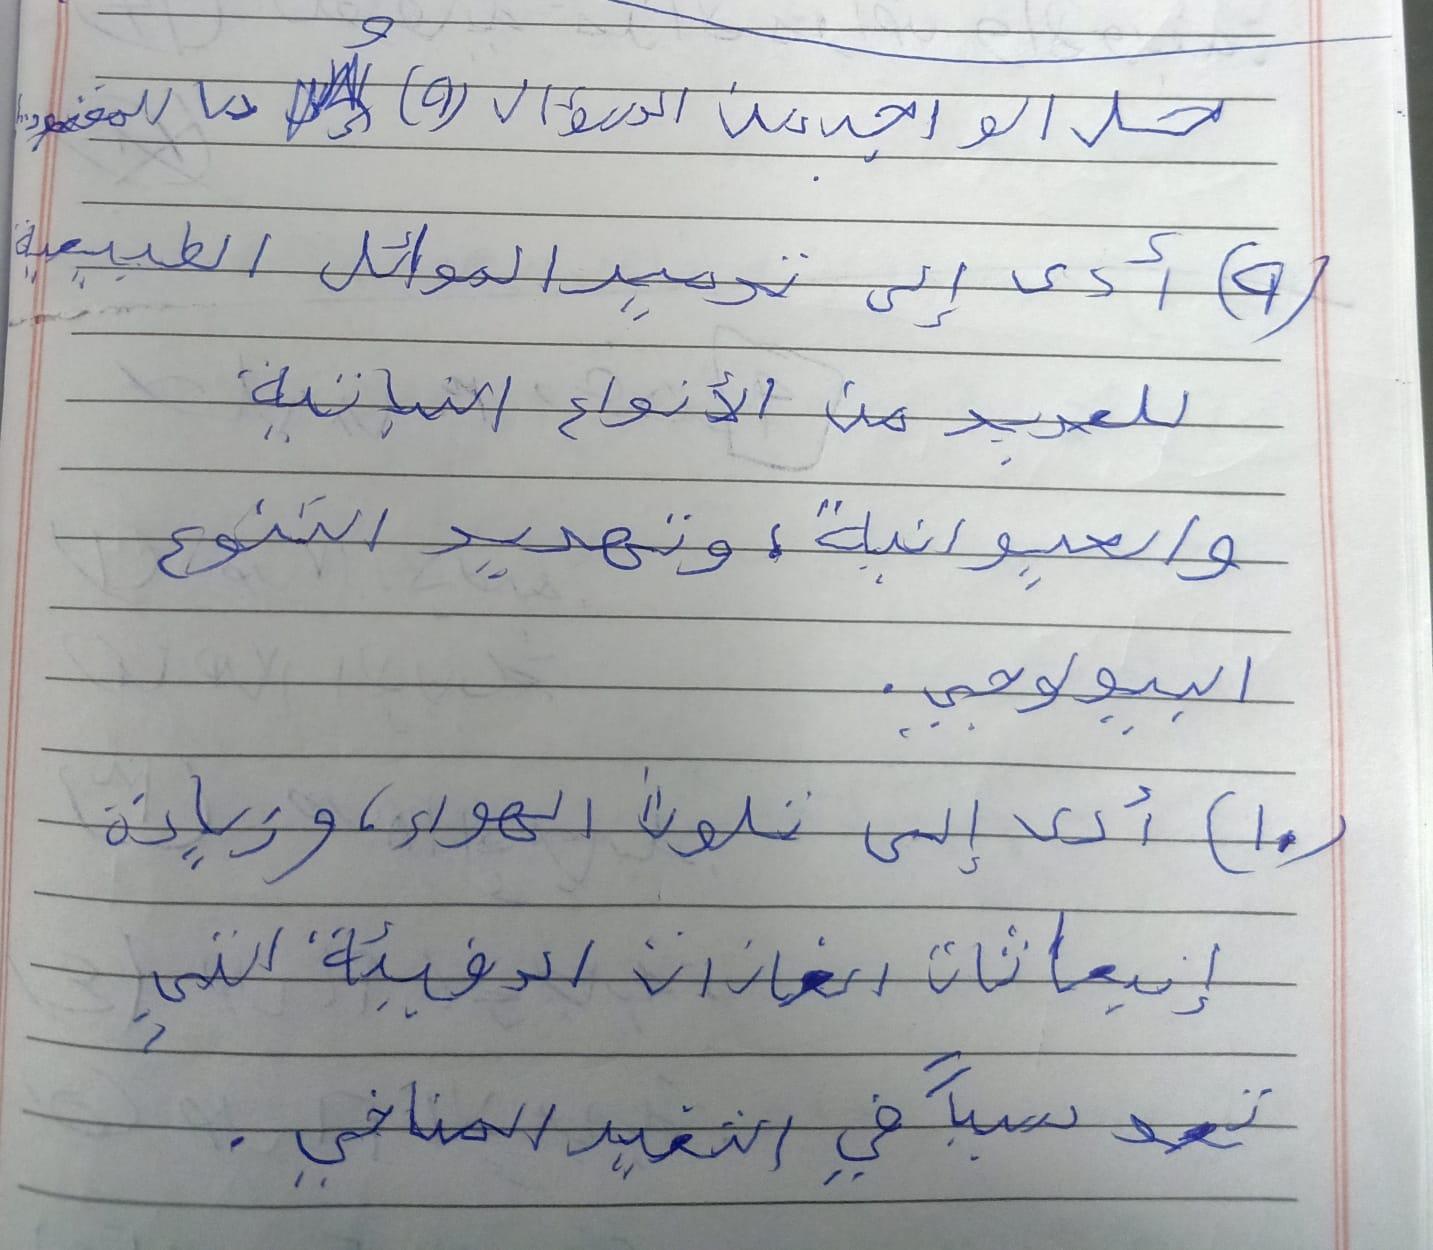 حل الواجب من السؤال (٩) و ما المقصود
(٩) أدى إلى تدمير الموائل الطبيعية
للعديد من الأنواع النباتية
والحيوانية، وتهديد التنوع
البيولوجي.
(١٠) أدى إلى تلوث الهواء، وزيادة
إنبعاثات الغازات الدفيئة التي
تعد سبباً في التغير المناخي.